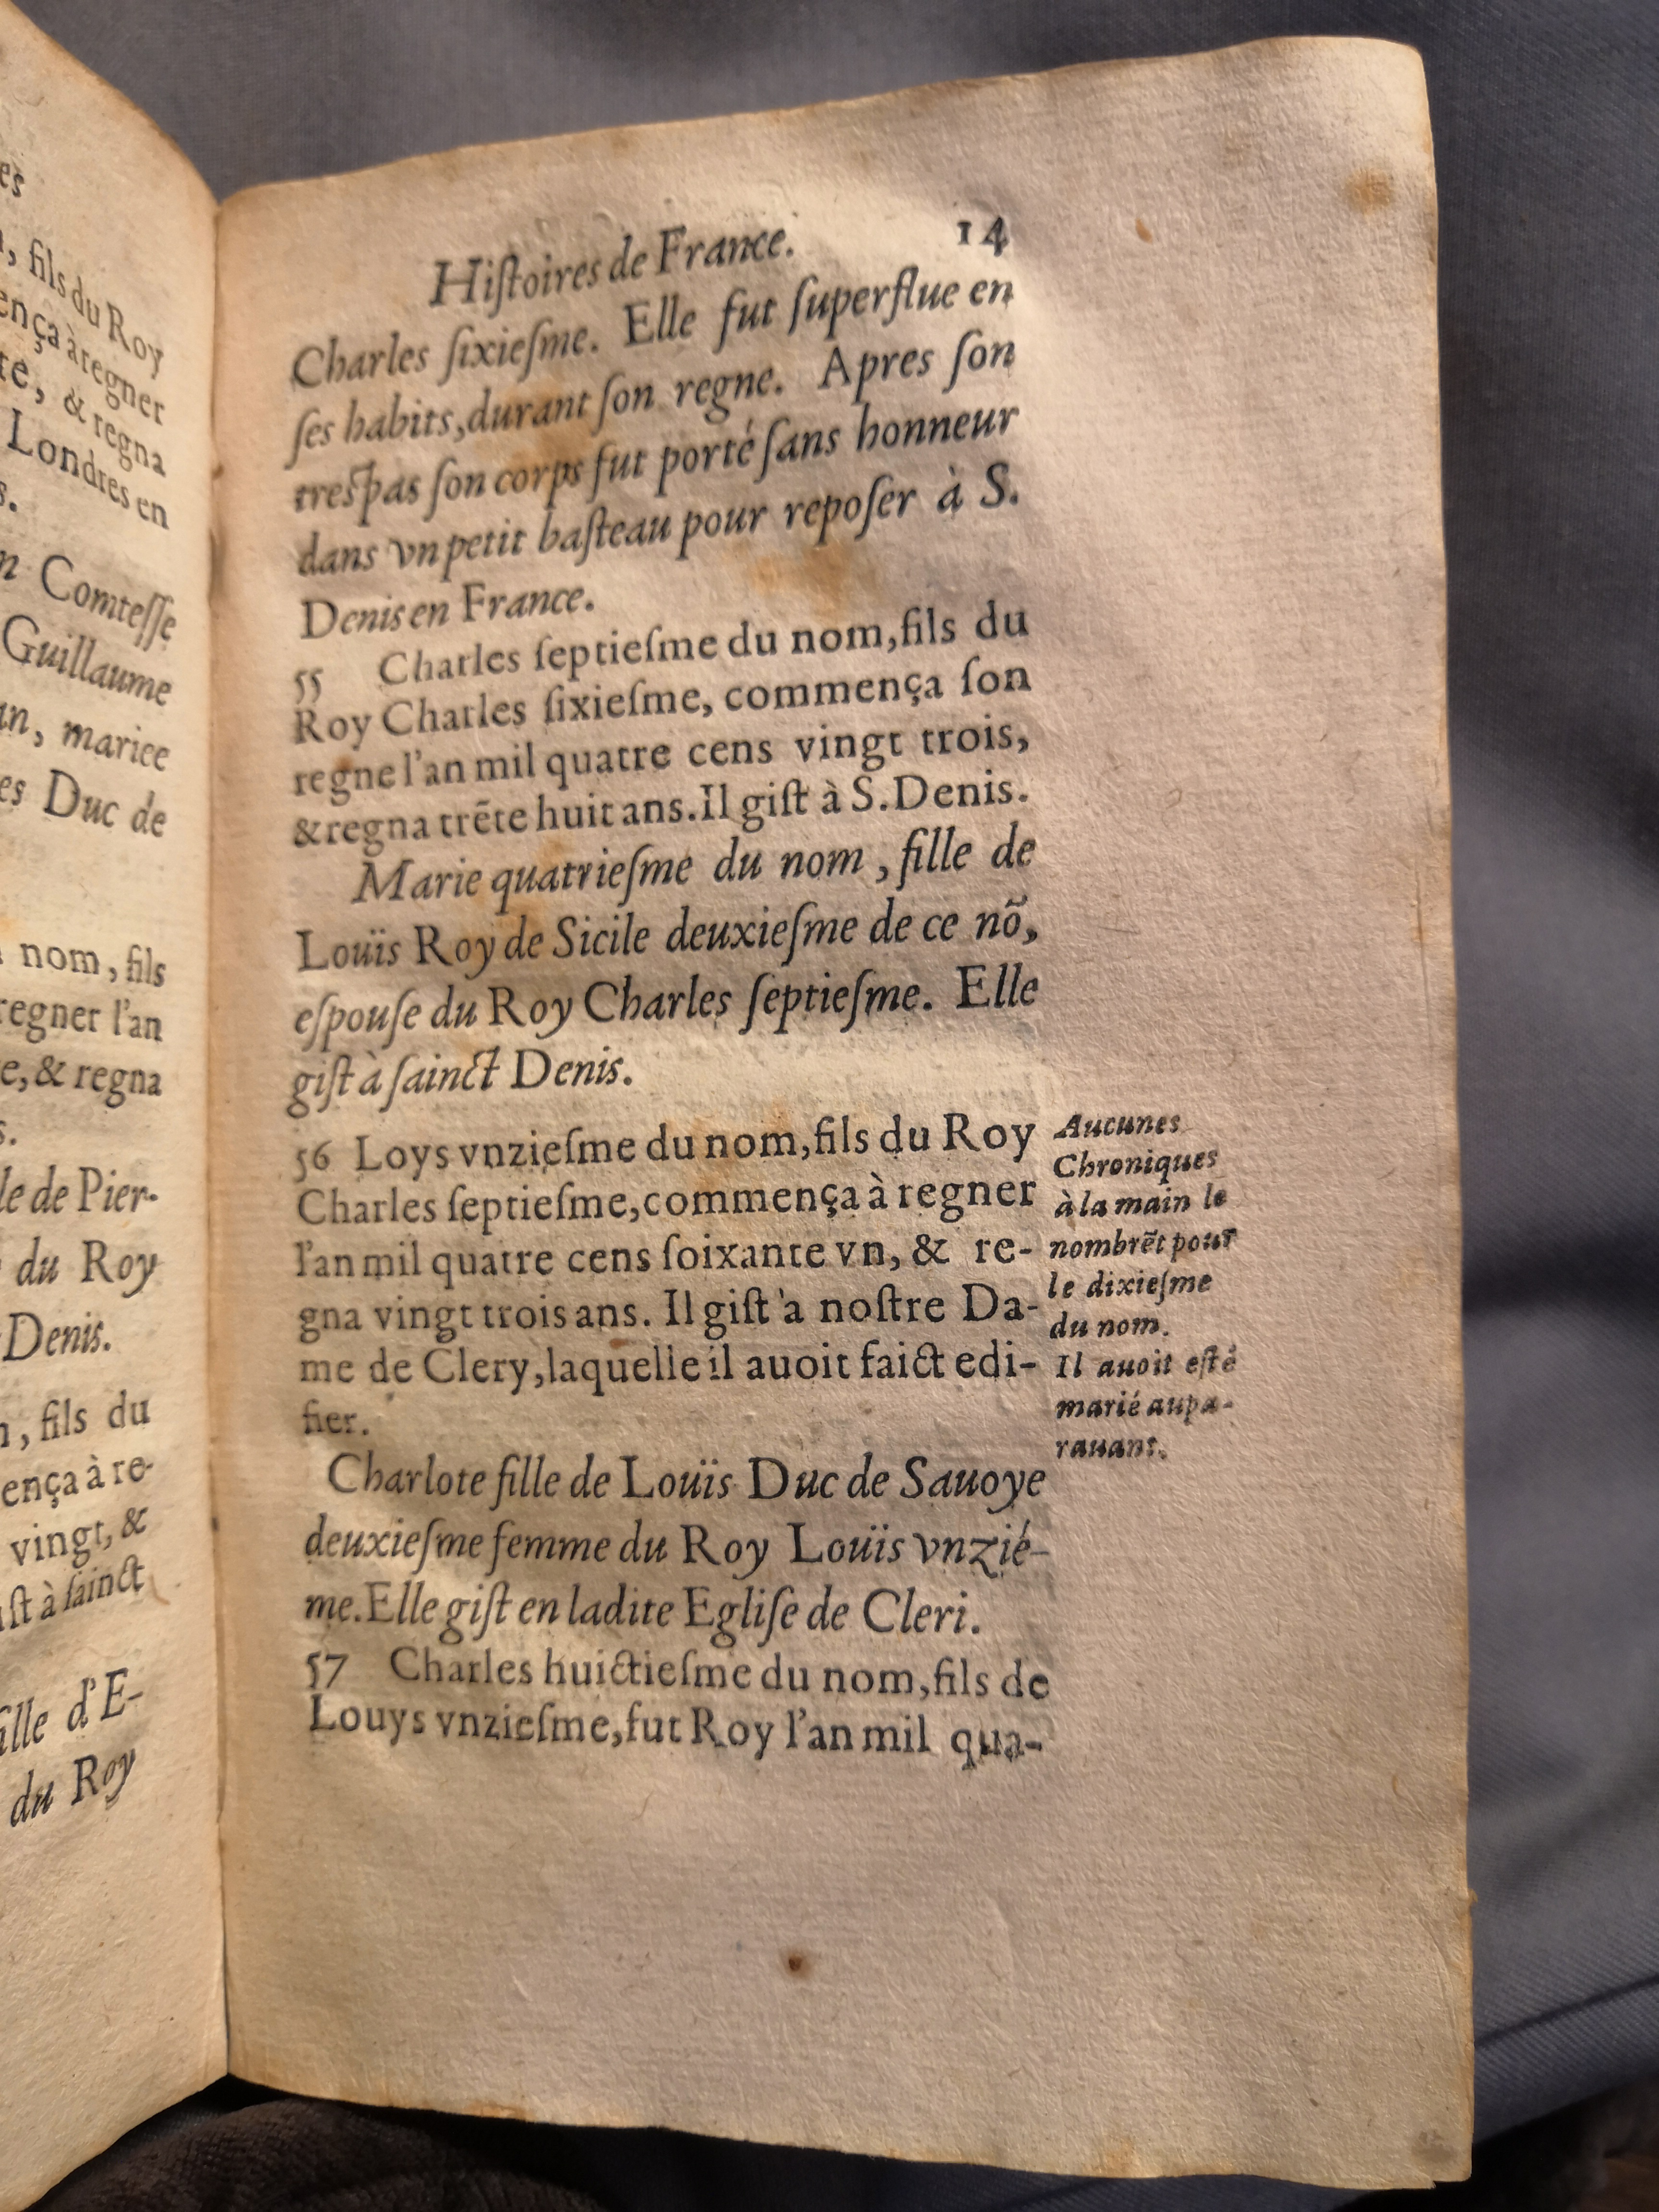 es
, fils du Roy
ença à regner
te, & regna
Londres en
s.
n Comteſſe
Guillaume
an, mariee
es Duc de
nom, fils
regner l'an
e, & regna
s.
le de Pier-
du Roy
Denis.
n, fils du
ença à re-
vingt, &
iſt à ſainct
fille d'E-
du Roy
Hiſtoires de France. 14
Charles ſixieſme. Elle fut ſuperflue en
ſes habits, durant ſon regne. Apres ſon
treſpas ſon corps fut porté ſans honneur
dans vn petit baſteau pour repoſer à S.
Denis en France.
55 Charles ſeptieſme du nom, fils du
Roy Charles ſixieſme, commença ſon
regne l'an mil quatre cens vingt trois,
& regna trẽte huit ans. Il giſt à S. Denis.
Marie quatrieſme du nom, fille de
Louïs Roy de Sicile deuxieſme de ce nõ,
eſpouſe du Roy Charles ſeptieſme. Elle
giſt à ſainct Denis.
56 Loys vnzieſme du nom, fils du Roy
Charles ſeptieſme, commença à regner
l'an mil quatre cens ſoixante vn, & re-
gna vingt trois ans. Il giſt 'a noſtre Da-
me de Clery, laquelle il auoit faict edi-
fier.
Aucunes
Chroniques
à la main le
nombrẽt pour
le dixieſme
du nom.
Il auoit eſté
marié aupa-
rauant.
Charlote fille de Louïs Duc de Sauoye
deuxieſme femme du Roy Louïs vnzié-
me. Elle giſt en ladite Egliſe de Cleri.
57 Charles huictieſme du nom, fils de
Louys vnzieſme, fut Roy l'an mil qua-